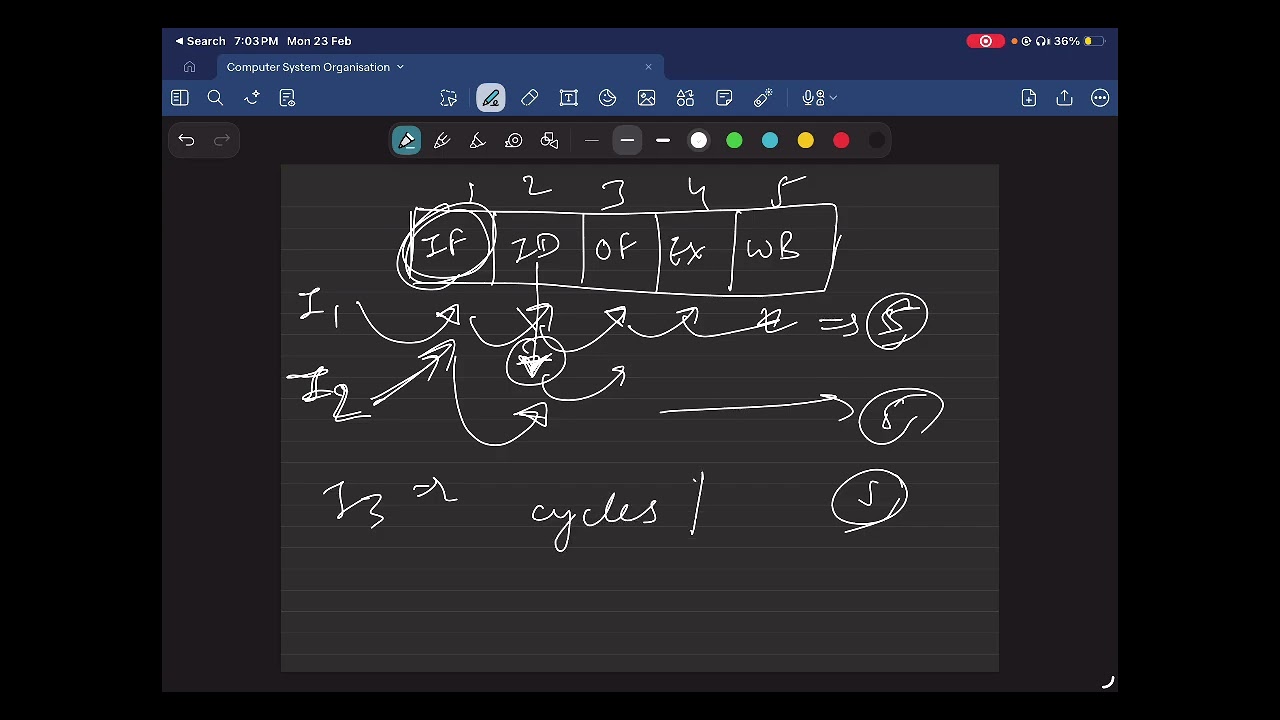 Search 7:03 PM Mon 23 Feb 36%
Computer System Organisation
1 2 3 4 5
IF ID OF EX WB
I1 => 5
I2 5
I3 => cycles / 5